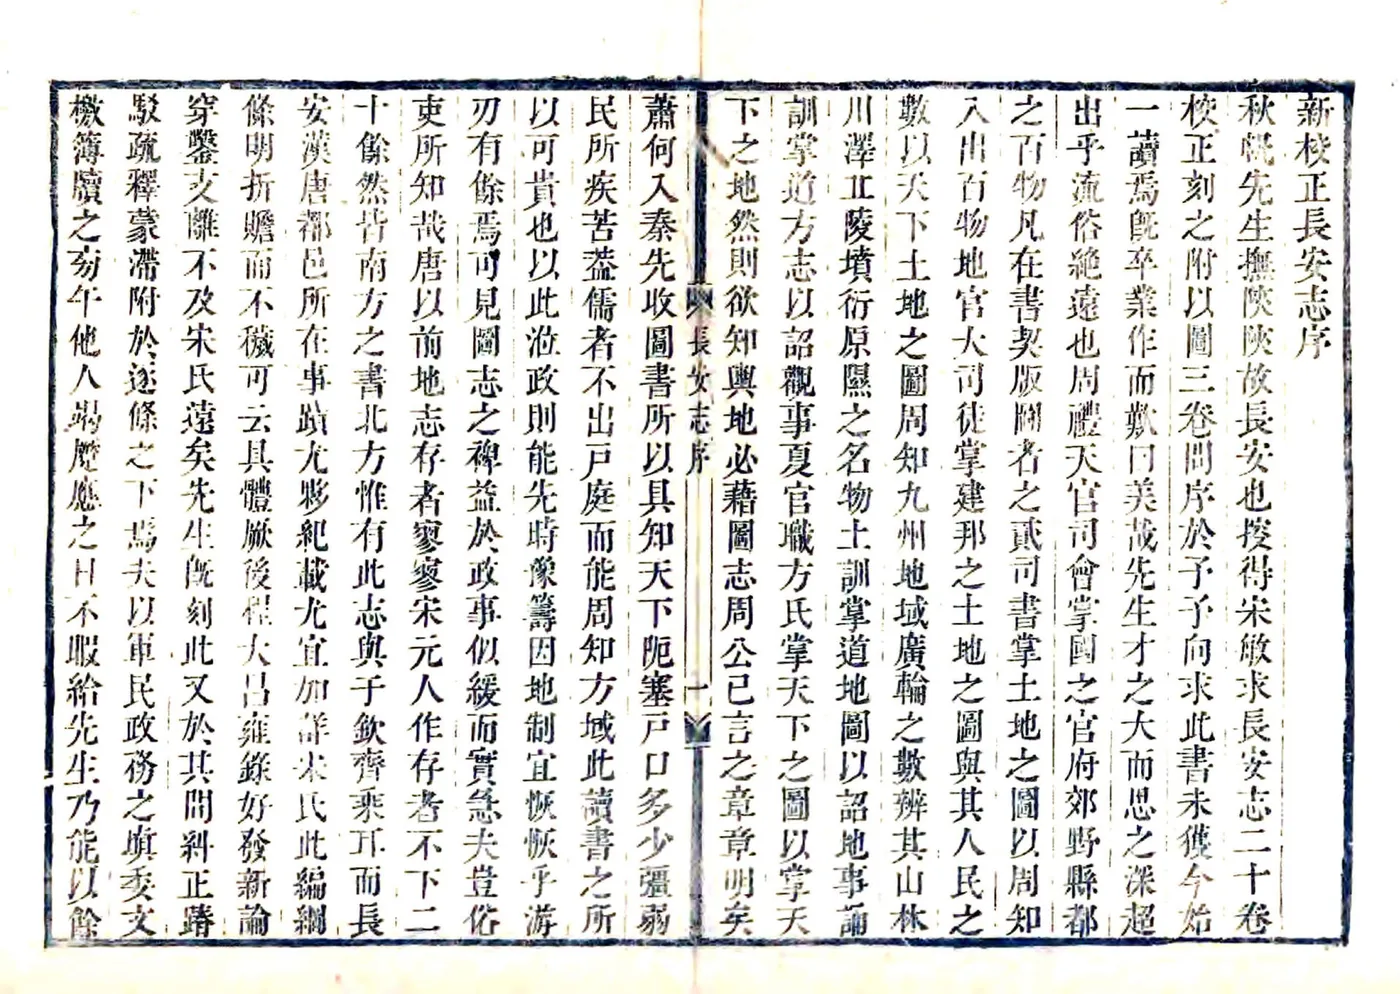 新校正長安志序
秋帆先生撫陝陝故長安也挍得宋敏求長安志二十卷
校正刻之附以圖三卷問序於予予向求此書未獲今始
一讀焉旣卒業作而歎曰美哉先生才之大而思之深超
出乎流俗絶遠也周禮天官司會掌國之官府郊野縣都
之百物凡在書契版圖者之貳司書掌土地之圖以周知
入出百物地官大司徒掌建邦之土地之圖與其人民之
數以天下土地之圖周知九州地域廣輪之數辨其山林
川澤丘陵墳衍原隰之名物土訓掌道地圖以詔地事誦
訓掌道方志以詔觀事夏官職方氏掌天下之圖以掌天
下之地然則欲知輿地必藉圖志周公已言之章章明矣
長安志序
一
蕭何入秦先收圖書所以具知天下阨塞戸口多少彊弱
民所疾苦葢儒者不出戸庭而能周知方域此讀書之所
以可貴也以此涖政則能先時像籌因地制宜恢恢乎游
刃有餘焉可見圖志之裨益於政事似緩而實急夫豈俗
吏所知哉唐以前地志存者寥寥宋元人作存者不下二
十餘然皆南方之書北方惟有此志與于欽齊乘耳而長
安漢唐都邑所在事蹟尤夥紀載尤宜加詳宋氏此編綱
條明折贍而不穢可云具體厥後程大昌雍錄好發新論
穿鑿支離不及宋氏遠矣先生旣刻此又於其間糾正踳
駁疏釋蒙滯附於逐條之下焉夫以軍民政務之塡委文
檄簿牘之旁午他人竭蹷應之日不暇給先生乃能以餘